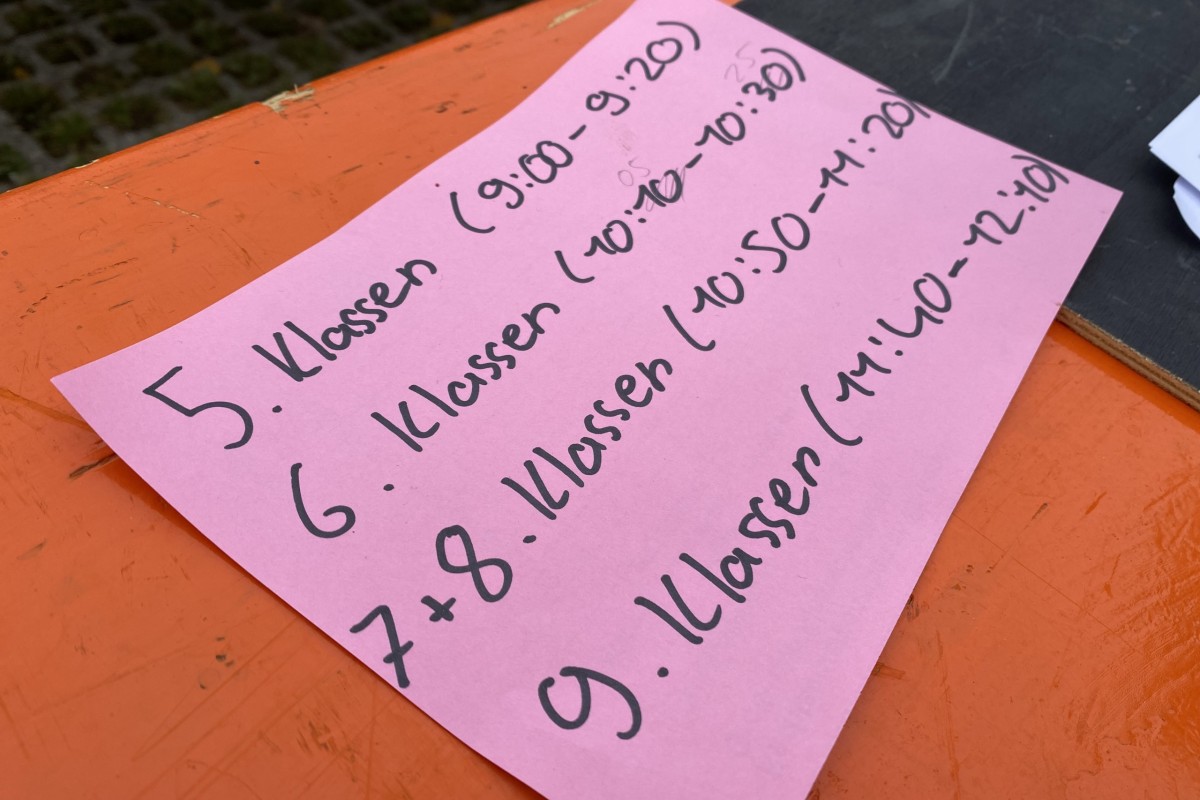 5. Klassen (9:00 - 9:20)
25
6. Klassen (10:10 - 10:30)
05
7+8. Klassen (10:50 - 11:20)
9. Klassen (11:40 - 12:10)